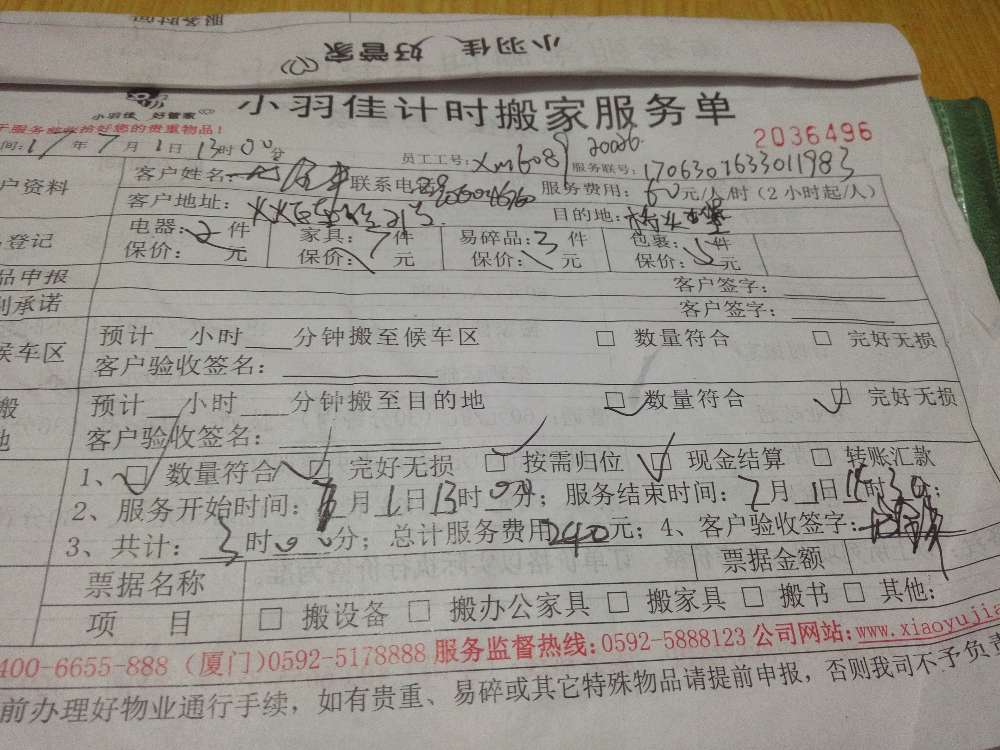 小羽佳 好管家
小羽佳 好管家
小羽佳计时搬家服务单
2036496
服务验收拾好您的贵重物品!
间:17年7月1日13时00分 员工工号:xm6089 服务联号:1706301633011983
户资料 客户姓名: 联系电 服务费用:60元/人/时(2小时起/人)
客户地址: 目的地:
登记 电器:2件 家具:7件 易碎品:3件 包裹: 件
保价: 元 保价: 元 保价: 元 保价: 元
品申报 客户签字:
别承诺 客户签字:
候车区 预计 小时 分钟搬至候车区 □ 数量符合 □ 完好无损
客户验收签名:
搬 预计 小时 分钟搬至目的地 ☑ 数量符合 ☑ 完好无损
地 客户验收签名:
1、☑ 数量符合 ☑ 完好无损 ☑ 按需归位 ☑ 现金结算 □ 转账汇款
2、服务开始时间:7月1日13时00分;服务结束时间:7月1日 时30;
3、共计:3时00分;总计服务费用240元;4、客户验收签字:
票据名称 票据金额
项 目 □ 搬设备 □ 搬办公家具 □ 搬家具 □ 搬书 □ 其他:
400-6655-888 (厦门)0592-5178888 服务监督热线:0592-5888123 公司网站:www.xiaoyujia
前办理好物业通行手续,如有贵重、易碎或其它特殊物品请提前申报,否则我司不予负责